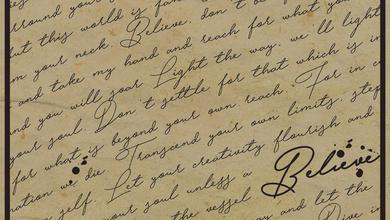 rround your
but this world is fam
m your neck. Believe, don't be
and take my hand and reach for what you
and you will soar. Light the way, we'll light
your soul. Don't settle for that which is in
for what is beyond your own reach. For in c
nation we die. Transcend your own limits, step
self. Let your creativity flourish and
your soul unless a Believe
the vessel away and let the
Dive i